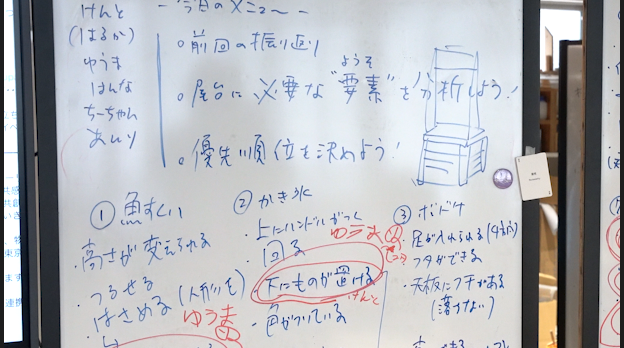 けんと
(はるか)
ゆうま
はんな
ちーちゃん
あいり
- 今日のメニュー -
○前回の振り返り
ようそ
○屋台に必要な"要素"を分析しよう!
○優先順位を決めよう!
① 魚すくい
・高さが変えられる
・つるせる
はさめる
ゆうま
② かき氷
上にハンドルがつく
ゆうま
回る
・下にものが置ける
けんと
・色がついている
③
・足が入れられる
・フタができる
・天板にフチがある
(落ちない)